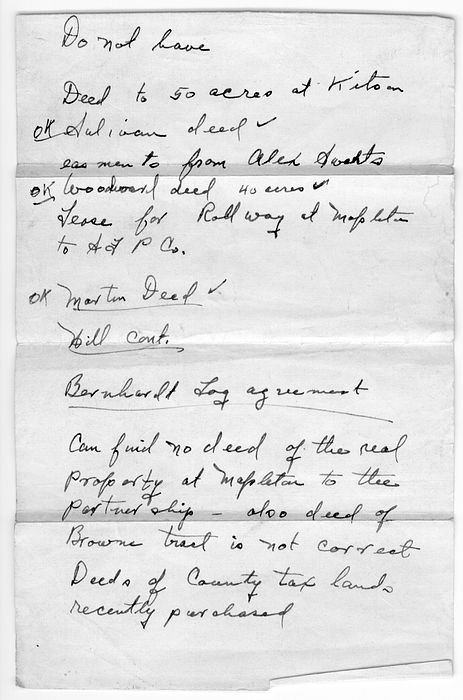 Do not have
Deed to 50 acres at Kitson
OK Sulivan deed ✓
easments from Alex
OK Woodward deed 40 acres ✓
Lease for Rollway at Mapleton
to A & P Co.
OK Martin Deed ✓
Hill cont.
Bernhardt Log agreement
Can find no deed of the real
Property at Mapleton to the
Partnership - also deed of
Browne tract is not correct
Deeds of County tax lands
recently purchased